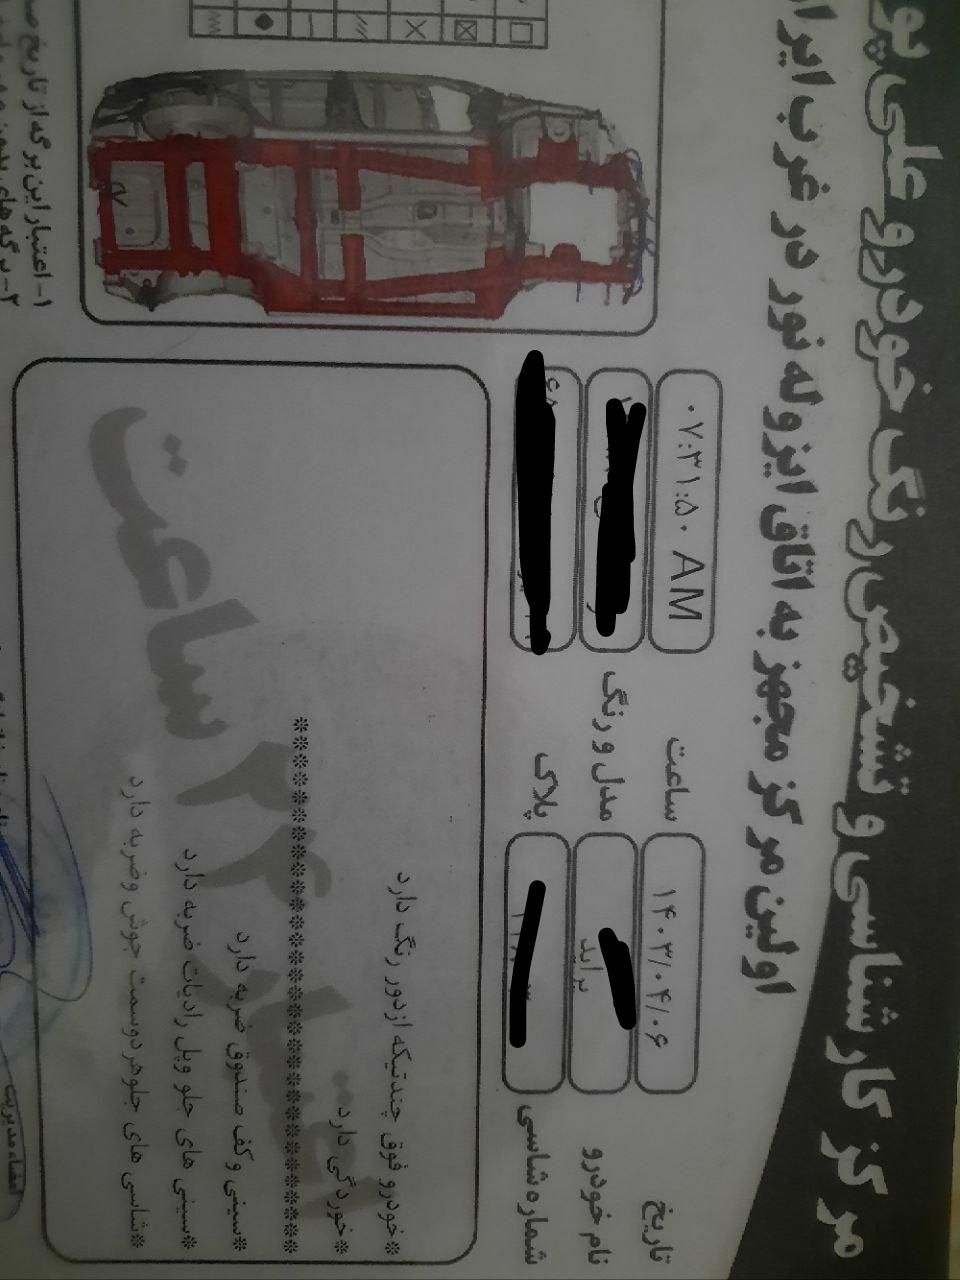 مرکز کارشناسی و تشخیص رنگ خودرو علی پو
اولین مرکز مجهز به اتاق ایزوله نور در غرب ایرا
تاریخ ۱۴۰۳/۰۴/۰۶ ساعت ۰۷:۳۱:۵۰ AM
نام خودرو پراید مدل و رنگ
شماره شاسی پلاک
*خودرو فوق چند تیکه از دور رنگ دارد
*خوردگی دارد
******************
*سینی و کف صندوق ضربه دارد
*سینی های جلو وپل رادیات ضربه دارد
*شاسی های جلو هر دوسمت جوش و ضربه دارد
اعتبار ۲۴ ساعت
امضاء مدیریت
۱- اعتبار این برگه از تاریخ
۲- برگه های بدون